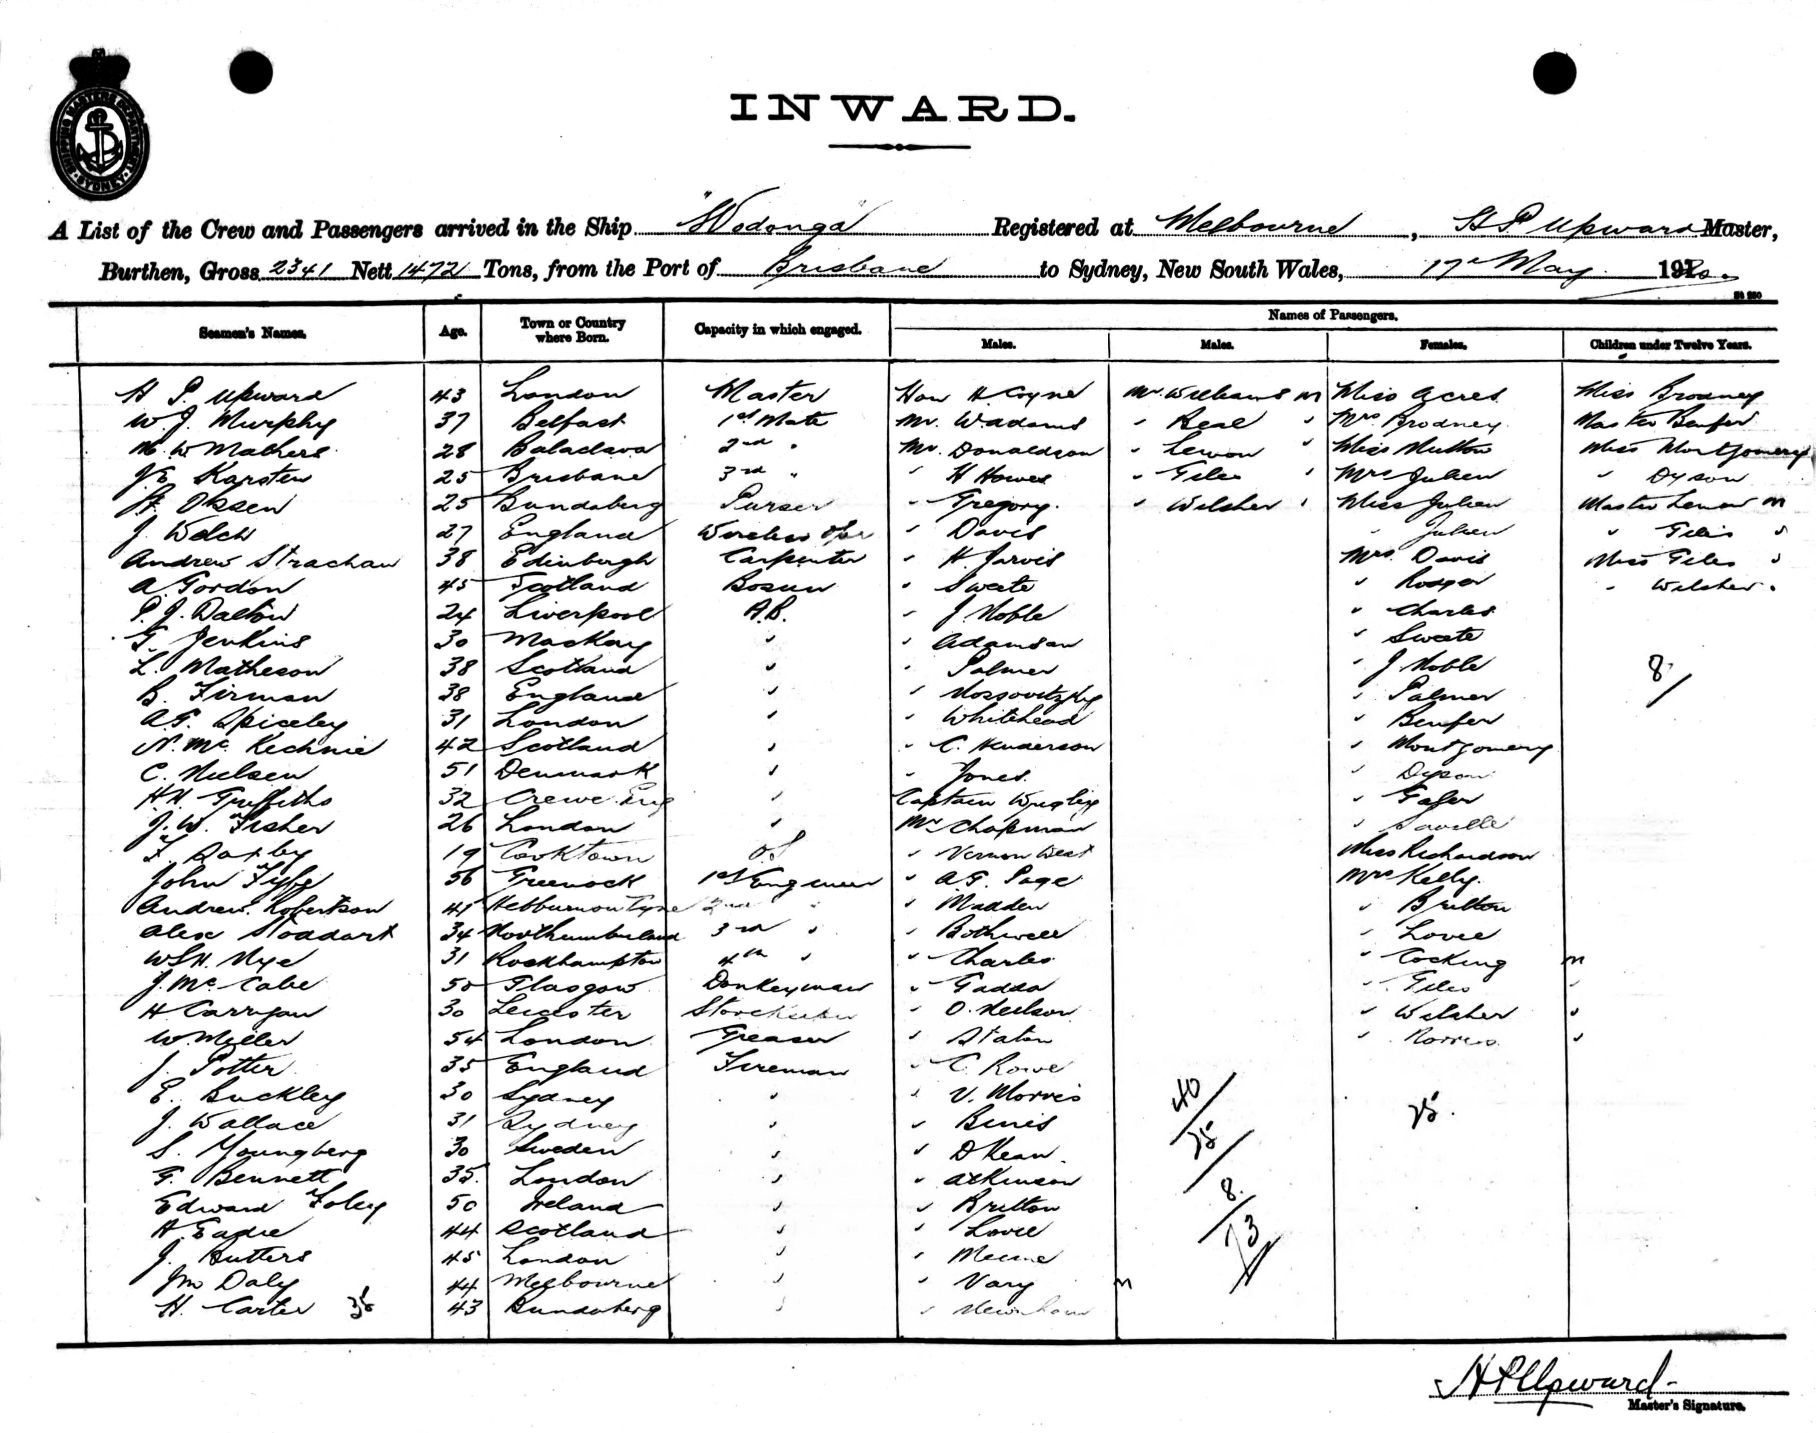 SHIPPING MASTERS DEPARTMENT
SYDNEY
INWARD.
A List of the Crew and Passengers arrived in the Ship "Wodonga" Registered at Melbourne, H P Upward Master,
Burthen, Gross 2341 Nett 1472 Tons, from the Port of Brisbane to Sydney, New South Wales, 17th May 1920.
Names of Passengers.
Seamen's Names. Age. Town or Country where Born. Capacity in which engaged. Males. Males. Females. Children under Twelve Years.
H P. Upward 43 London Master Hon H Coyne Mr Williams m Miss Acres Miss Brodney
W. J. Murphy 37 Belfast 1st Mate Mr. Waddams " Beal " Mrs Brodney Master Benfer
W Mathers 28 Balaclava 2nd " Mr. Donaldson " Lewon " Miss Hutton Miss Montgomery
J E Karsten 25 Brisbane 3rd " " H Howes " Giles " Mrs Julien " Dyson
Olssen 25 Bundaberg Purser " Gregory. " Welsher " Miss Julien Master m
J. Welch 27 England Wireless Opr " Davis " Julien " Giles "
Andrew Strachan 38 Edinburgh Carpenter " H. Jarvis Mrs. Davis Miss Giles "
A. Gordon 45 Scotland Bosun " Sweete " Rodger " Welsher "
P. J. Dalton 24 Liverpool A.B. " J. Noble " Charles
G. Jenkins 30 Mackay " " Adamson " Sweete
L. Matheson 38 Scotland " " Palmer " J. Noble 8
B. Firman 38 England " " " Palmer
A.G. Spiceley 31 London " " Whitehead " Benfer
N. Mc Kechnie 42 Scotland " " C. Henderson " Montgomery
C. Nielsen 51 Denmark " " Jones. " Dyson
H.H. Griffiths 32 Crewe Eng " Captain " Gafer
J. W. Fisher 26 London " Mr Chapman " Saville
F. Saxby 19 Cooktown O.S " Vernon West Miss Richardson
John Fyfe 56 Greenock 1st Engineer " A.G. Page Mrs Kelly.
Andrew. Robertson 41 Hebburn on Tyne 2nd " " Madden " Britton
Alex Stoddart 34 Northumberland 3rd " " Bothwell " Lovel
W S H. Nye 31 Rockhampton 4th " " Charles " Cocking m
J. Mc Cabe 50 Glasgow Donkeyman " Gadda " Giles "
H Carrigan 30 Leicester Storekeeper " O. Neilson " Welsher "
W. Miller 54 London Greaser " Staton " Norris "
J. Potter 35 England Fireman " C. Rowe
E. Buckley 30 Sydney " " V. Morris 40 25.
J. Wallace 31 Sydney " " Binis 25
S. Youngberg 30 Sweden " " D Kean.
G. Bennett 35. London " " Atkinson 8.
Edward Foley 50 Ireland " " Britton
H Eadie 44 Scotland " " Lovel 73
J. Butters 45 London "
Jno Daly 44 Melbourne " " Vary m
H. Carter 35 43 Bundaberg " " Newnham
H P Upward
Master's Signature.